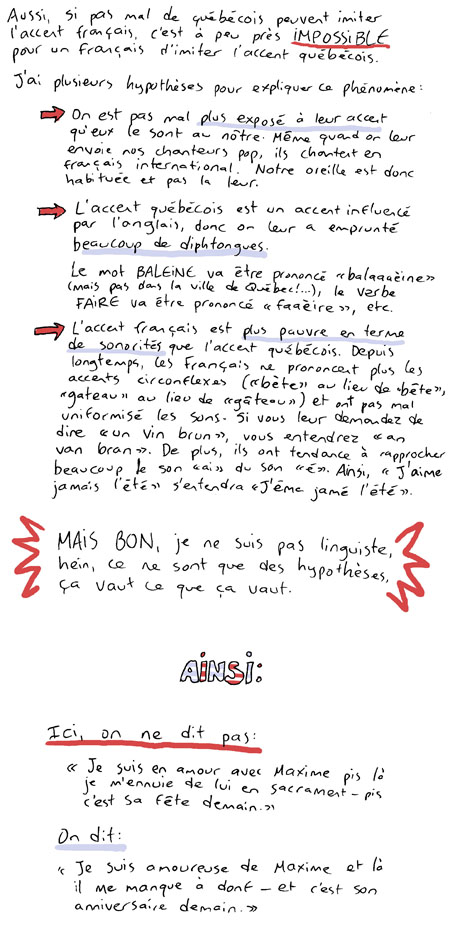 Aussi, si pas mal de québécois peuvent imiter
l'accent français, c'est à peu près IMPOSSIBLE
pour un français d'imiter l'accent québécois.
J'ai plusieurs hypothèses pour expliquer ce phénomène:
On est pas mal plus exposé à leur accent
qu'eux le sont au nôtre. Même quand on leur
envoie nos chanteurs pop, ils chantent en
français international. Notre oreille est donc
habituée et pas la leur.
L'accent québécois est un accent influencé
par l'anglais, donc on leur a emprunté
beaucoup de diphtongues.
Le mot BALEINE va être prononcé «balaaaèine»
(mais pas dans la ville de Québec!...), le verbe
FAIRE va être prononcé «faaèire», etc.
L'accent français est plus pauvre en terme
de sonorités que l'accent québécois. Depuis
longtemps, les Français ne prononcent plus les
accents circonflexes («bète» au lieu de «bête»,
«gateau» au lieu de «gâteau») et ont pas mal
uniformisé les sons. Si vous leur demandez de
dire «un vin brun», vous entendrez «an
van bran». De plus, ils ont tendance à rapprocher
beaucoup le son «ai» du son «é». Ainsi, «J'aime
jamais l'été» s'entendra «J'éme jamé l'été».
MAIS BON, je ne suis pas linguiste,
hein, ce ne sont que des hypothèses,
ça vaut ce que ça vaut.
AINSI:
Ici, on ne dit pas:
« Je suis en amour avec Maxime pis là
je m'ennuie de lui en sacrament – pis
c'est sa fête demain.»
On dit:
« Je suis amoureuse de Maxime et là
il me manque à donf – et c'est son
anniversaire demain. »